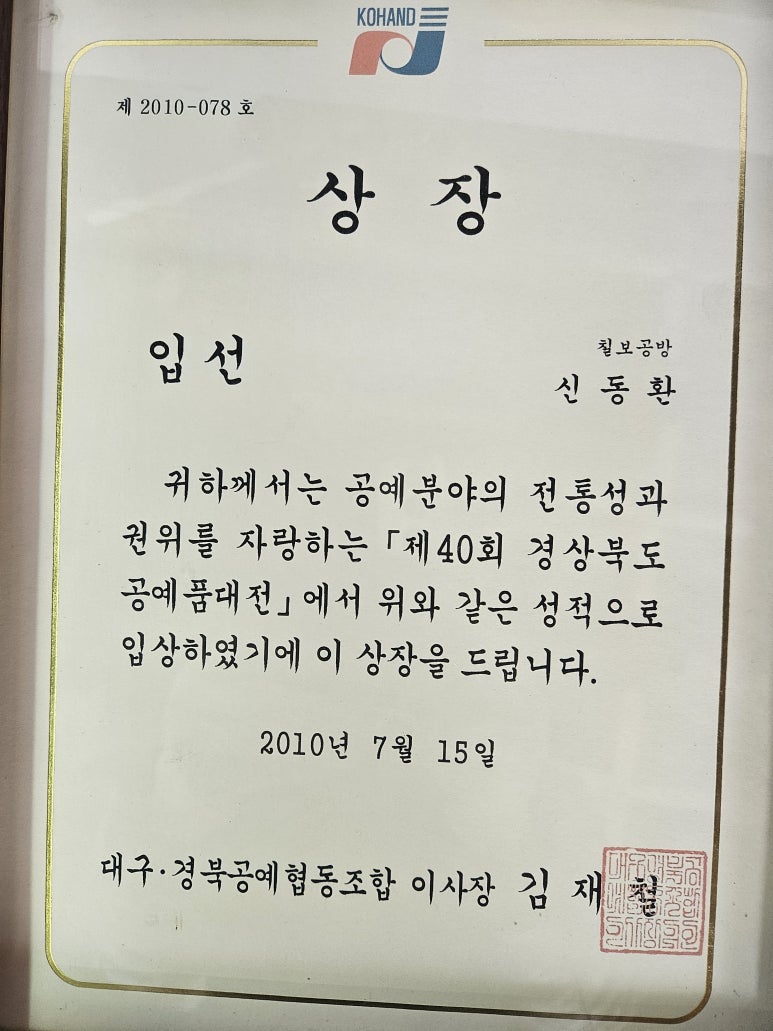 KOHAND
제 2010-078 호
상 장
입 선
칠보공방
신 동 환
귀하께서는 공예분야의 전통성과
권위를 자랑하는 「제40회 경상북도
공예품대전」에서 위와 같은 성적으로
입상하였기에 이 상장을 드립니다.
2010년 7월 15일
대구·경북공예협동조합 이사장 김 재 철